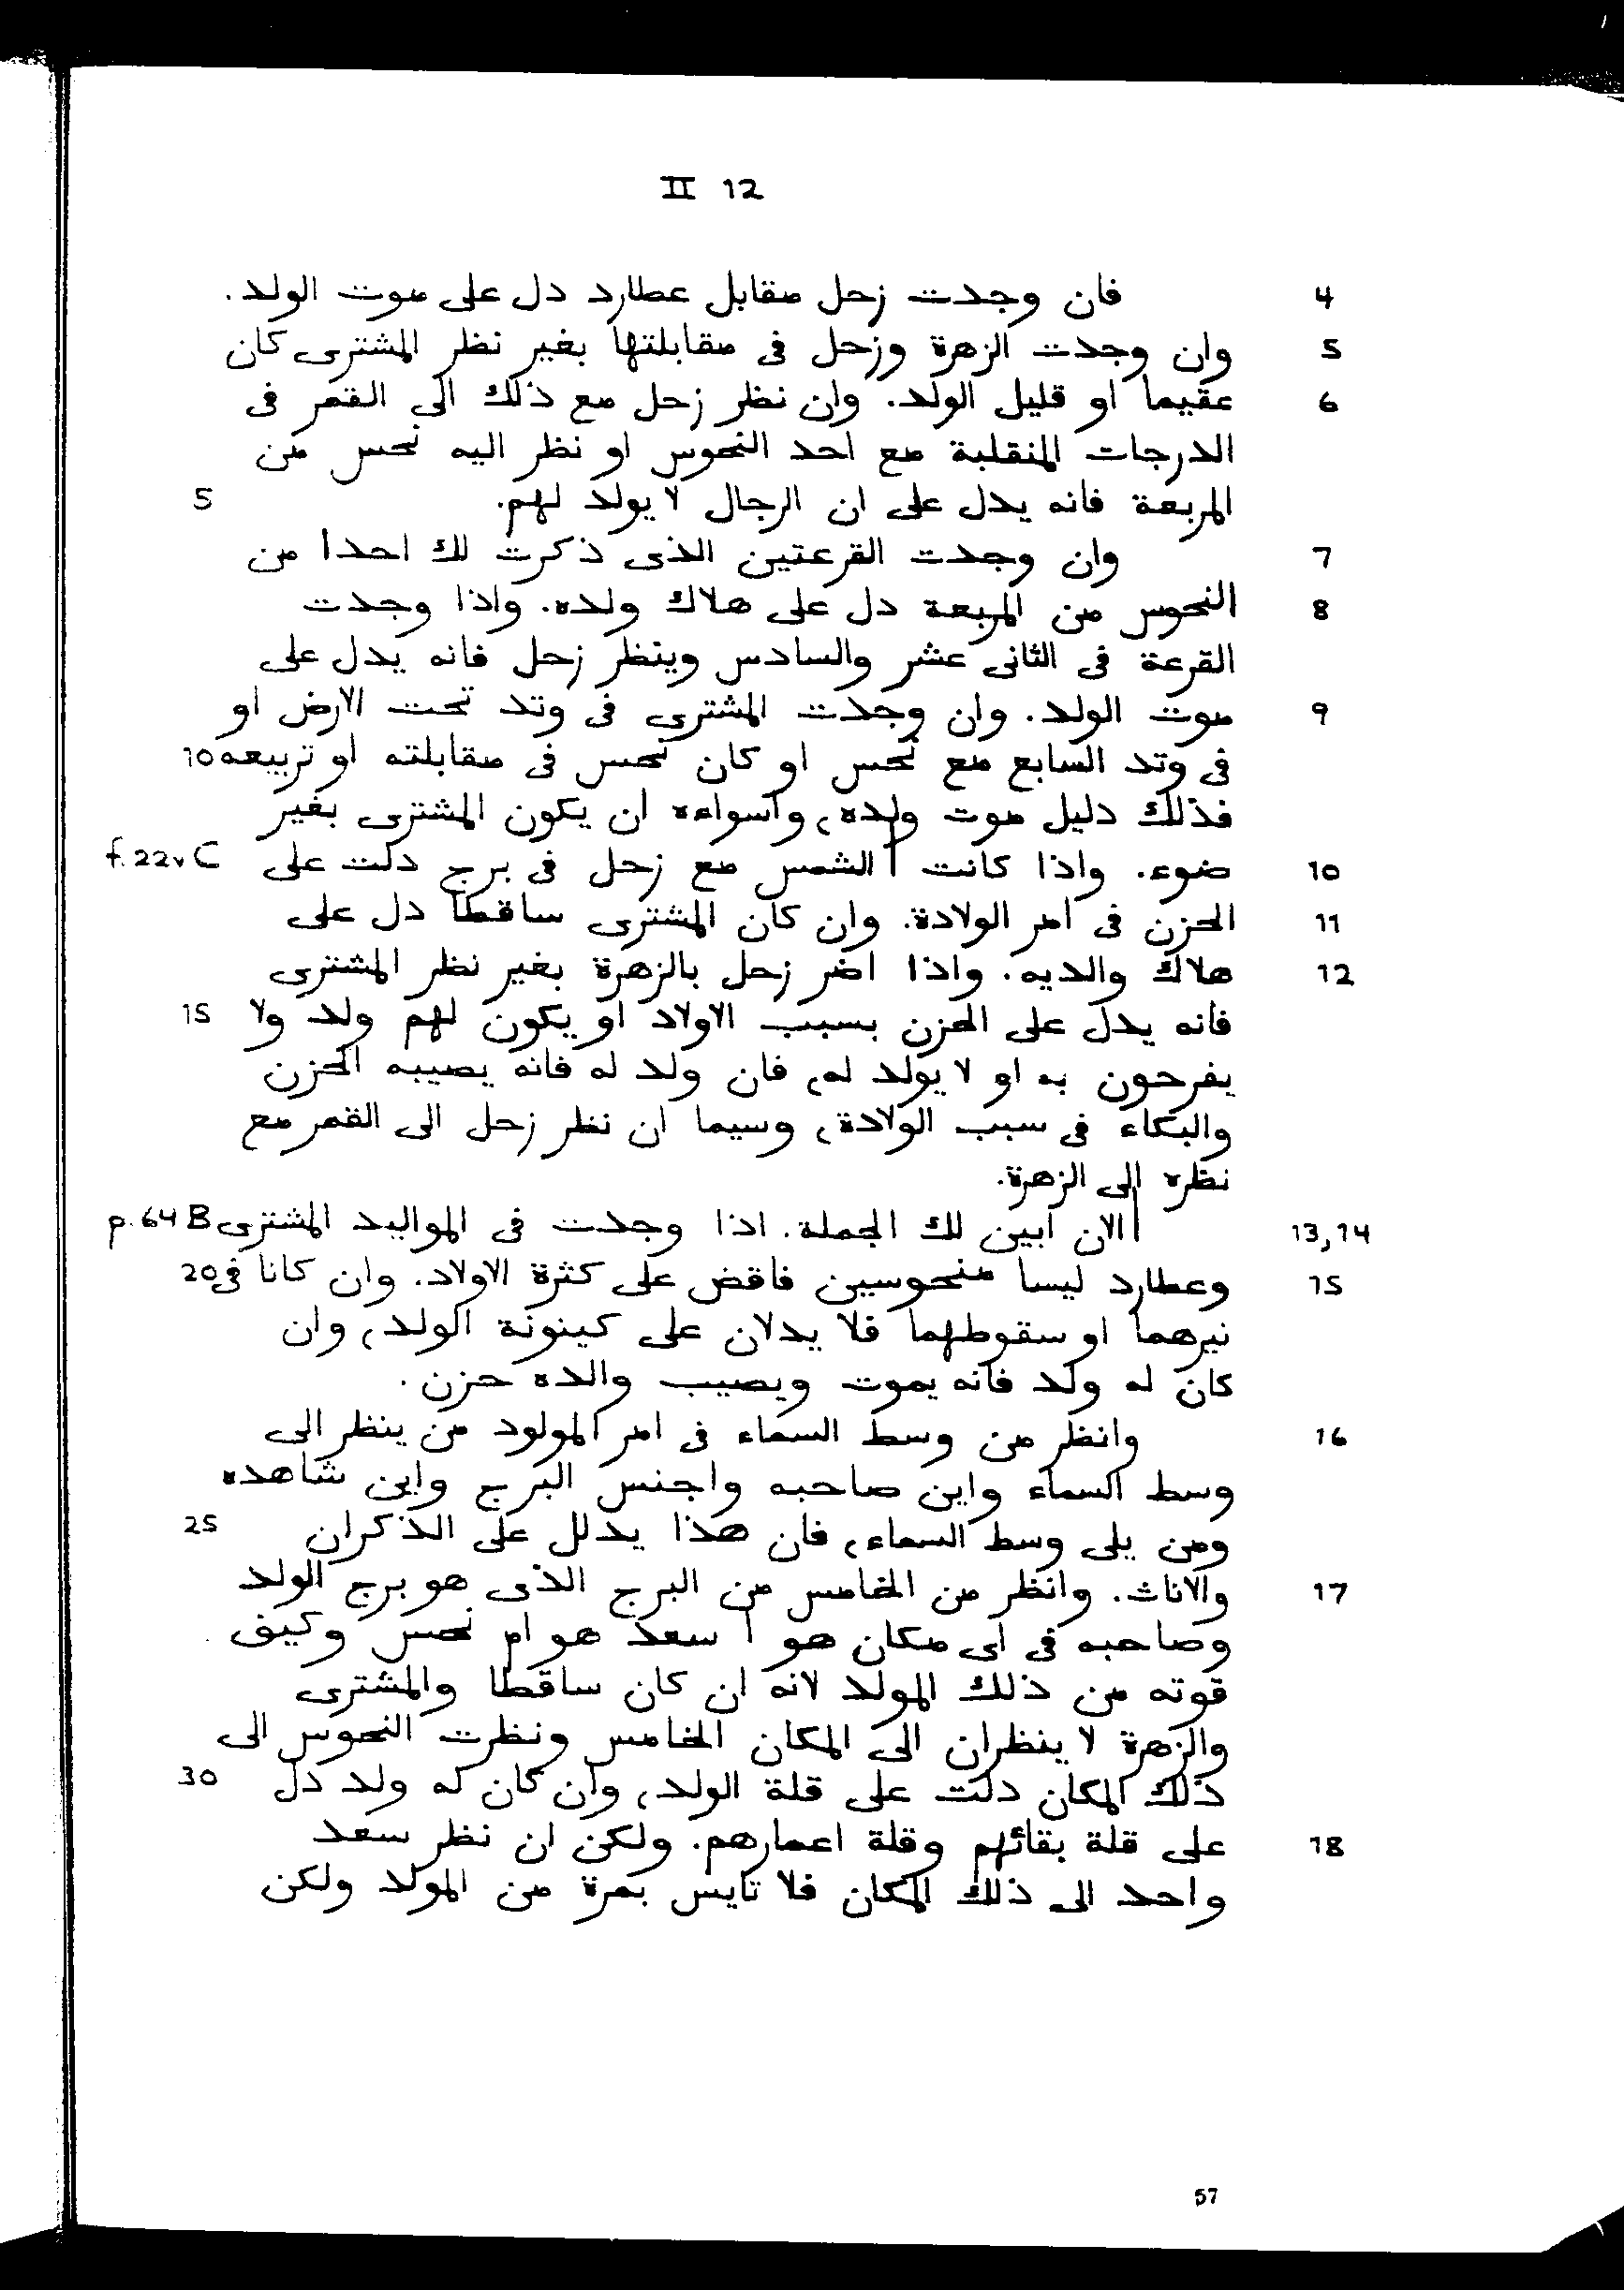 II 12
4 فان وجدت زحل مقابل عطارد دل على موت الولد.
5 وان وجدت الزهرة وزحل فى مقابلتها بغير نظر المشترى كان
6 عقيما او قليل الولد. وان نظر زحل مع ذلك الى القمر فى
الدرجات المنقلبة مع احد النحوس او نظر اليه نحس من
المربعة فانه يدل على ان الرجال لا يولد لهم. 5
7 وان وجدت القرعتين الذى ذكرت لك احدا من
8 النحوس من المربعة دل على هلاك ولده. واذا وجدت
القرعة فى الثانى عشر والسادس وينظر زحل فانه يدل على
9 موت الولد. وان وجدت المشترى فى وتد تحت الارض او
فى وتد السابع مع نحس او كان نحس فى مقابلته او تربيعه 10
فذلك دليل موت ولده، واسواءه ان يكون المشترى بغير
10 ضوء. واذا كانت | الشمس مع زحل فى برج دلت على f. 22v C
11 الحزن فى امر الولادة. وان كان المشترى ساقطا دل على
12 هلاك والديه. واذا اضر زحل بالزهرة بغير نظر المشترى
فانه يدل على الحزن بسبب الاولاد او يكون لهم ولد ولا 15
يفرحون به او لا يولد له، فان ولد له فانه يصيبه الحزن
والبكاء فى سبب الولادة، وسيما ان نظر زحل الى القمر مع
نظره الى الزهرة.
13,14 | الان ابين لك الجملة. اذا وجدت فى المواليد المشترى p. 64 B
15 وعطارد ليسا منحوسين فاقض على كثرة الاولاد. وان كانا فى 20
نيرهما او سقوطهما فلا يدلان على كينونة الولد، وان
كان له ولد فانه يموت ويصيب والده حزن.
16 وانظر من وسط السماء فى امر المولود من ينظر الى
وسط السماء واين صاحبه واجنس البرج واين شاهده
ومن يلى وسط السماء، فان هذا يدلل على الذكران 25
17 والاناث. وانظر من الخامس من البرج الذى هو برج الولد
وصاحبه فى اى مكان هو أ سعد هو ام نحس وكيف
قوته من ذلك المولد لانه ان كان ساقطا والمشترى
والزهرة لا ينظران الى المكان الخامس ونظرت النحوس الى
ذلك المكان دلت على قلة الولد، وان كان له ولد دل 30
18 على قلة بقائهم وقلة اعمارهم. ولكن ان نظر سعد
واحد الى ذلك المكان فلا تايس بمرة من المولد ولكن
57